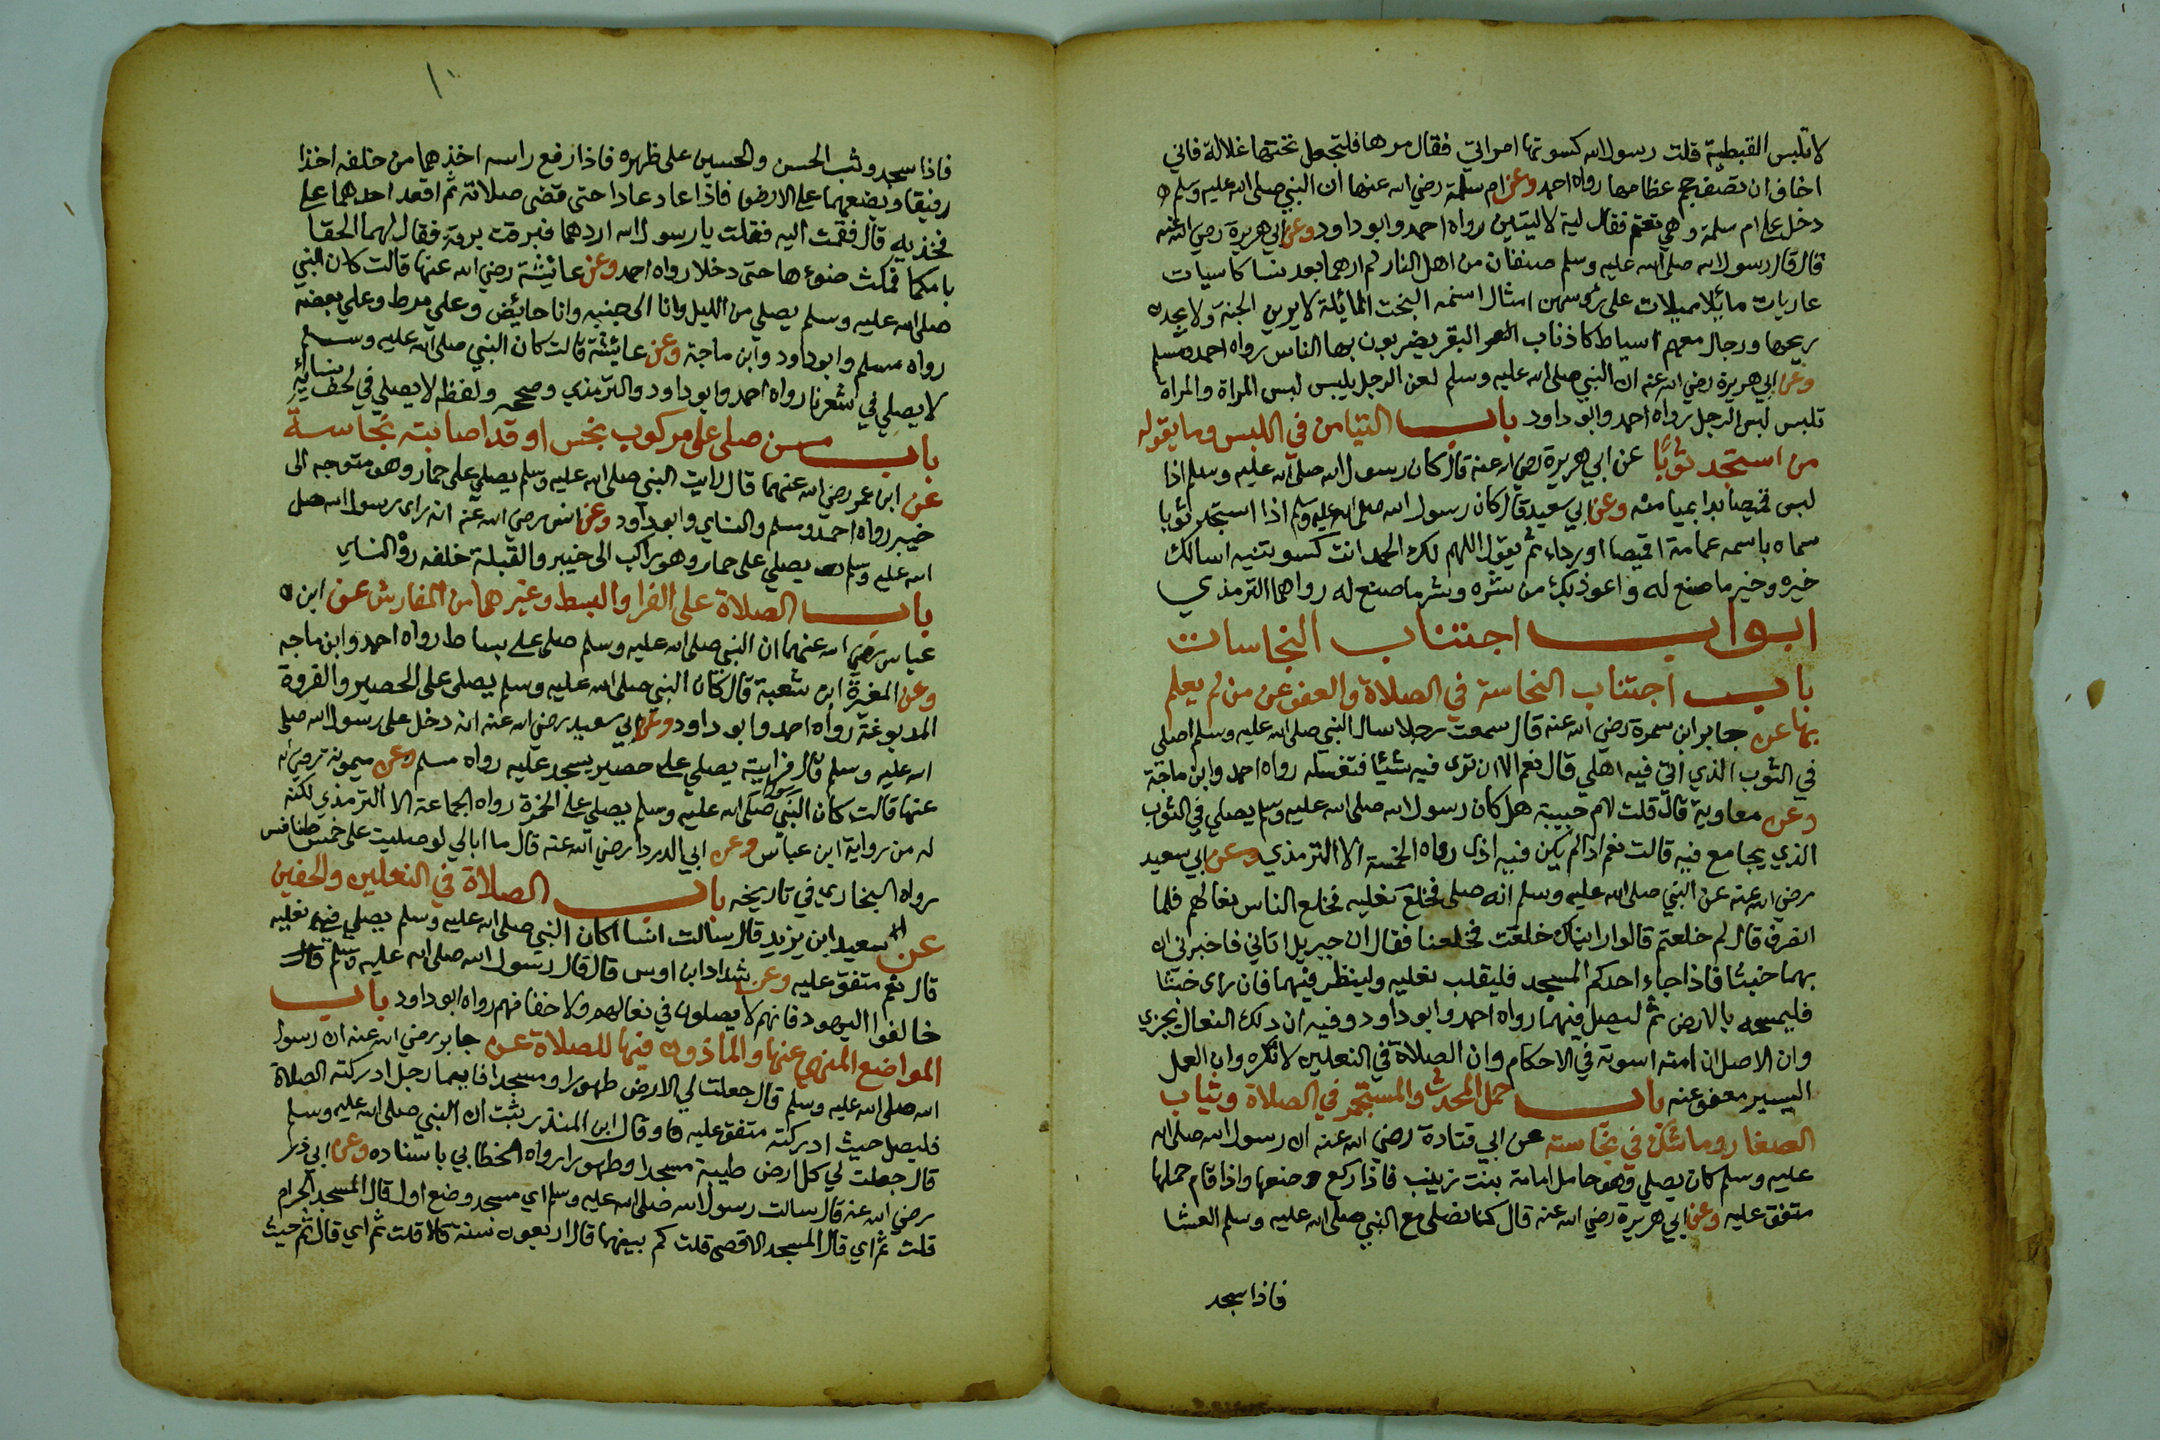 لا تلبس القبطية قلت رسول الله كسوتها امراتي فقال مرها فلتجعل تحتها غلالة فاني
اخاف ان تصف حجم عظامها رواه احمد وعن ام سلمة رضي الله عنها ان النبي صلى الله عليه وسلم
دخل على ام سلمة وهي تختمر فقال لية لا ليتين رواه احمد وابو داود وعن ابي هريرة رضي الله عنه
قال قال رسول الله صلى الله عليه وسلم صنفان من اهل النار لم ارهما بعد نسا كاسيات
عاريات مائلا مميلات على رؤسهن امثال اسنمه البخت المائلة لا يرين الجنة ولا يجدن
ريحها ورجال معهم اسياط كاذناب البقر يضربون بها الناس رواه احمد ومسلم
وعن ابي هريرة رضي الله عنه ان النبي صلى الله عليه وسلم لعن الرجل يلبس لبس المراة والمراة
تلبس لبس الرجل رواه احمد وابو داود باب التيامن في اللبس وما يقوله
من استجد ثوبا عن ابي هريرة رضي الله عنه قال كان رسول الله صلى الله عليه وسلم اذا
لبس قميصا بدا بميامنه وعن ابي سعيد قال كان رسول الله صلى الله عليه وسلم اذا استجد ثوبا
سماه باسمه عمامة اقميصا او رداء ثم يقول اللهم لك الحمد انت كسوتنيه اسالك
خيره وخير ما صنع له واعوذ بك من شره وشر ما صنع له رواهما الترمذي
ابواب اجتناب النجاسات
باب اجتناب النجاسة في الصلاة والعفو عن من لم يعلم
بها عن جابر ابن سمرة رضي الله عنه قال سمعت رجلا سال النبي صلى الله عليه وسلم اصلي
في الثوب الذي اتي فيه اهلي قال نعم الا ان ترى فيه شيئا فتغسله رواه احمد وابن ماجة
وعن معاوية قال قلت لام حبيبة هل كان رسول الله صلى الله عليه وسلم يصلي في الثوب
الذي يجامع فيه قالت نعم اذا لم يكن فيه اذى رواه الخمسة الا الترمذي وعن ابي سعيد
رضي الله عنه عن النبي صلى الله عليه وسلم انه صلى فخلع نعليه فخلع الناس نعالهم فلما
انصرف قال لم خلعتم قالوا رايناك خلعت فخلعنا فقال ان جبريل اتاني فاخبرني ان
بهما خبثا فاذا جاء احدكم المسجد فليقلب نعليه ولينظر فيهما فان راى خبثا
فليمسحه بالارض ثم ليصل فيهما رواه احمد وابو داود وفيه ان دلك النعال يجزي
وان الاصل ان امته اسوته في الاحكام وان الصلاة في النعلين لا تكره وان العمل
اليسير معفو عنه باب حمل المحدث والمستجمر في الصلاة وثياب
الصغار وما شك في نجاسته عن ابي قتادة رضي الله عنه ان رسول الله صلى الله
عليه وسلم كان يصلي وهو حامل امامة بنت زينب فاذا ركع وضعها واذا قام حملها
متفق عليه وعن ابي هريرة رضي الله عنه قال كنا نصلي مع النبي صلى الله عليه وسلم العشا
فاذا سجد
١٠
فاذا سجد وثب الحسن والحسين على ظهره فاذا رفع راسه اخذهما من خلفه اخذا
رفيقا ويضعهما على الارض فاذا عاد عادا حتى قضى صلاته ثم اقعد احدهما على
فخذيه قال فقمت اليه فقلت يا رسول الله اردهما فبرقت برقة فقال لهما الحقا
بامكما فمكث ضوءها حتى دخلا رواه احمد وعن عائيشة رضي الله عنها قالت كان النبي
صلى الله عليه وسلم يصلي من الليل وانا الى جنبه وانا حايض وعلي مرط وعلي بعضه
رواه مسلم وابو داود وابن ماجة وعن عائيشة قالت كان النبي صلى الله عليه وسلم
لا يصلي في شعرنا رواه احمد وابو داود والترمذي وصححه ولفظه لا يصلي في لحف نسائه
باب من صلى على مركوب نجس او قد اصابته نجاسة
عن ابن عمر رضي الله عنهما قال رايت النبي صلى الله عليه وسلم يصلي على حمار وهو متوجه الى
خيبر رواه احمد ومسلم والنساي وابو داود وعن انس رضي الله عنه انه راى رسول الله صلى
الله عليه وسلم يصلي على حمار وهو راكب الى خيبر والقبلة خلفه رواه النساي
باب الصلاة على الفرا والبسط وغيرهما من المفارش عن ابن
عباس رضي الله عنهما ان النبي صلى الله عليه وسلم صلى على بساط رواه احمد وابن ماجه
وعن المغيرة ابن شعبة قال كان النبي صلى الله عليه وسلم يصلي على الحصير والفروة
المدبوغة رواه احمد وابو داود وعن ابي سعيد رضي الله عنه انه دخل على رسول الله صلى
الله عليه وسلم قال فرايته يصلي على حصير يسجد عليه رواه مسلم وعن ميمونة رضي الله
عنها قالت كان رسول النبي صلى الله عليه وسلم يصلي على الخمرة رواه الجماعة الا الترمذي لكنه
له من رواية ابن عباس وعن ابي الدرداء رضي الله عنه قال ما ابالي لو صليت على خمس طنافس
رواه البخاري في تاريخه باب الصلاة في النعلين والخفين
عن سعيد ابن يزيد قال سالت انسا اكان النبي صلى الله عليه وسلم يصلي في نعليه
قال نعم متفق عليه وعن شداد ابن اوس قال قال رسول الله صلى الله عليه وسلم قال
خالفوا اليهود فانهم لا يصلون في نعالهم ولا خفافهم رواه ابو داود باب
المواضع المنهي عنها والماذون فيها للصلاة عن جابر رضي الله عنه ان رسول
الله صلى الله عليه وسلم قال جعلت لي الارض طهورا ومسجدا فايما رجل ادركته الصلاة
فليصل حيث ادركته متفق عليه وقال ابن المنذر ثبت ان النبي صلى الله عليه وسلم
قال جعلت لي كل ارض طيبة مسجدا وطهورا رواه الخطابي باسناده وعن ابي ذر
رضي الله عنه قال سالت رسول الله صلى الله عليه وسلم اي مسجد وضع اول قال المسجد الحرام
قلت ثم اي قال المسجد الاقصى قلت كم بينهما قال اربعون سنة قال قلت ثم اي قال ثم حيث